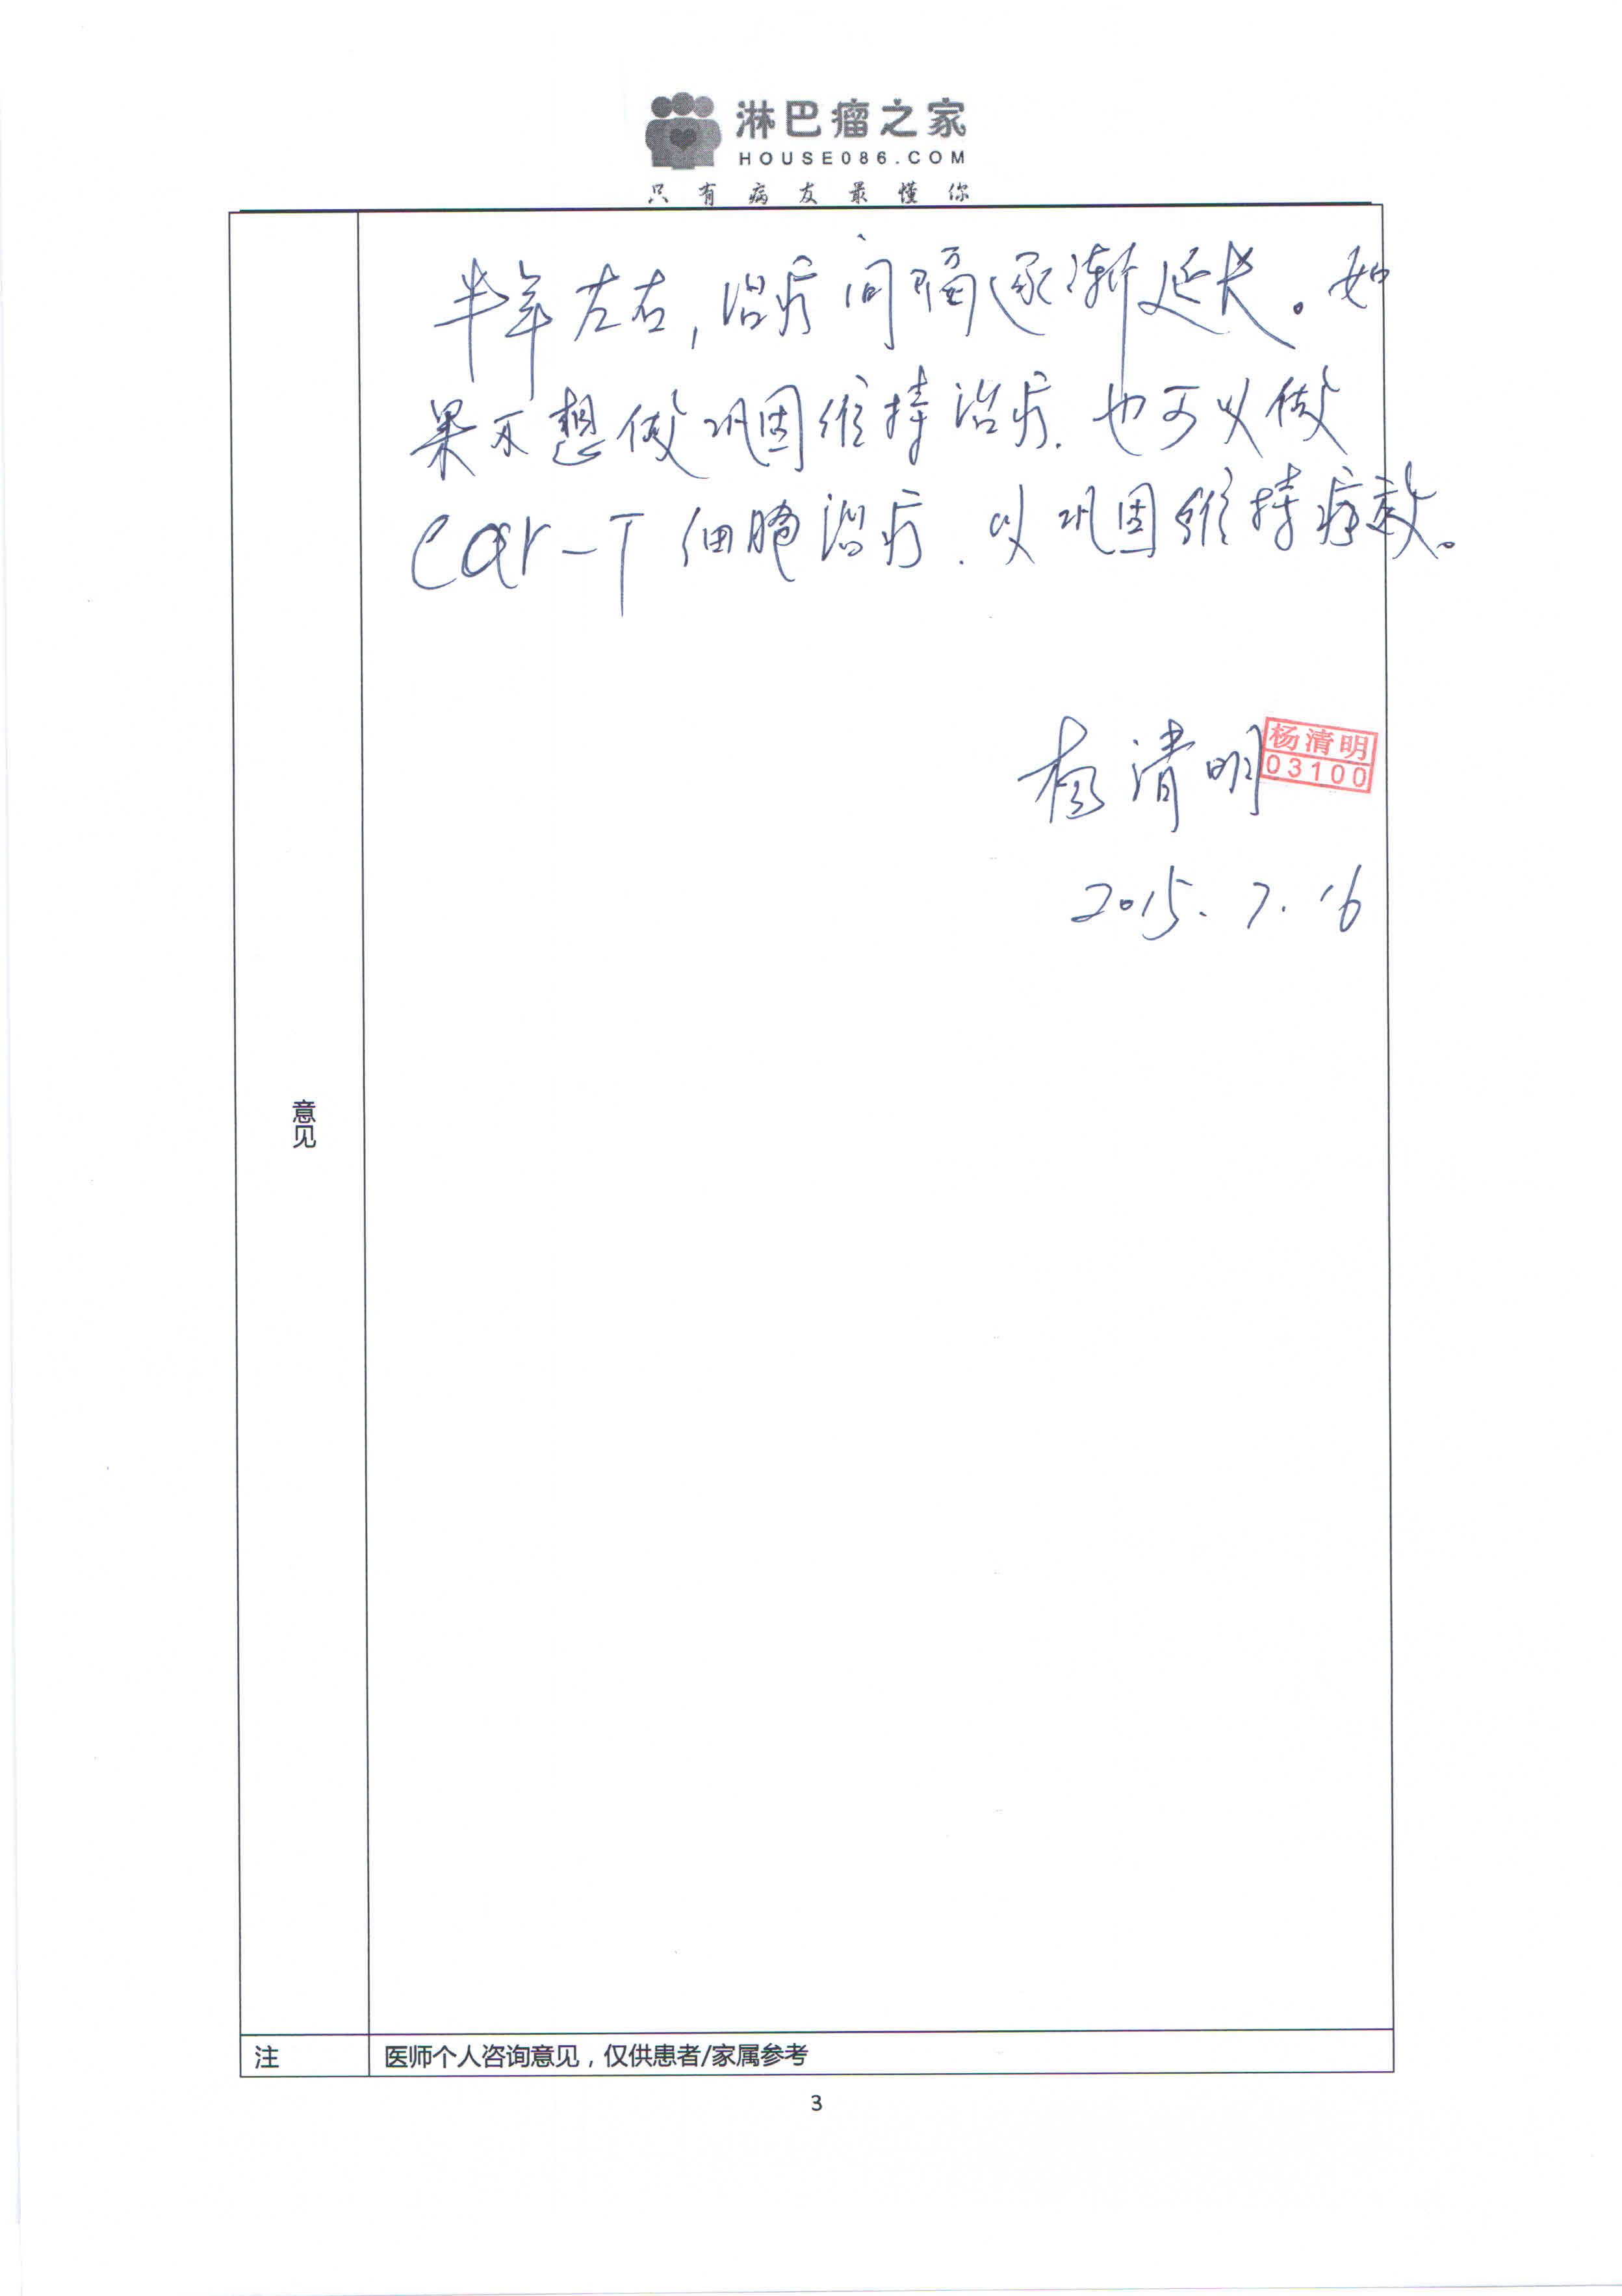 淋巴瘤之家
HOUSE086.COM
只有病友最懂你
半年左右,治疗间隔逐渐延长。如
果不想做巩固维持治疗.也可以做
Car-T细胞治疗.以巩固维持疗效。
杨清明
杨清明
03100
2015.7.16
意见
注
医师个人咨询意见，仅供患者/家属参考
3